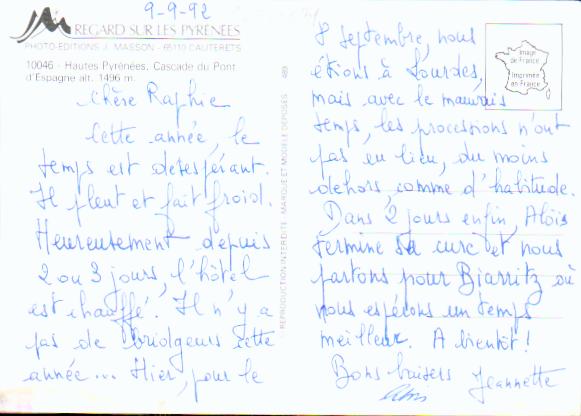 9-9-92
REGARD SUR LES PYRÉNÉES
PHOTO-EDITIONS J. MASSON - 65110 CAUTERETS
10046 - Hautes Pyrénées, Cascade du Pont
d'Espagne alt. 1496 m.
489
REPRODUCTION INTERDITE MARQUE ET MODELE DEPOSES
Image
de France
Imprimée
en France
Chère Raphie
Cette année, le
temps est desespérant.
Il pleut et fait froid.
Heureusement depuis
2 ou 3 jours, l'hôtel
est chauffé. Il n'y a
pas de bridgeurs cette
année... Hier, pour le
8 septembre, nous
étions à Lourdes,
mais avec le mauvais
temps, les processions n'ont
pas eu lieu, du moins
dehors, comme d'habitude.
Dans 2 jours enfin, Aloïs
termine sa cure et nous
partons pour Biarritz où
nous espérons un temps
meilleur. A bientôt!
Bons baisers Jeannette